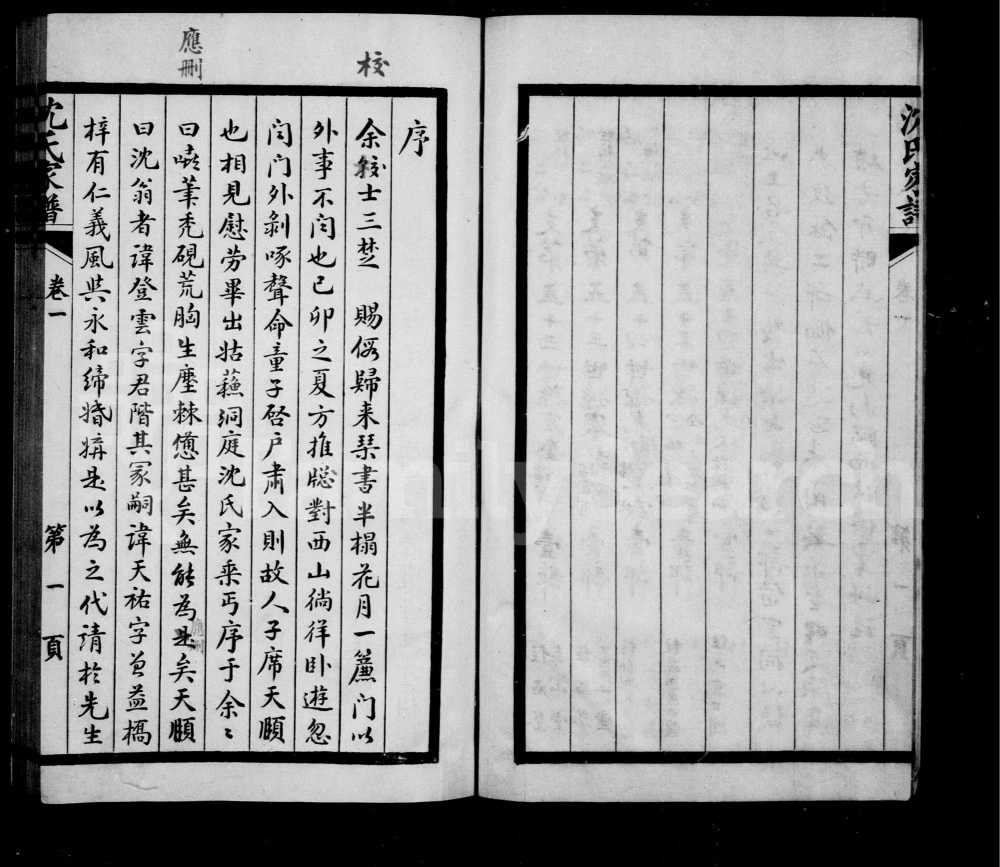 沈氏家譜
卷一
第一頁
校
應刪
序
余校士三楚 賜假歸来琹書半榻花月一簾门以
外事不问也已卯之夏方推牕對西山徜徉卧遊忽
闻门外剝啄聲命童子啓户肃入則故人子席天頥
也相見慰劳畢出姑蘓洞庭沈氏家乗丐序于余〻
曰嘻筆秃硯荒胸生塵棘憊甚矣無能為是矣天頥
應刪
曰沈翁者諱登雲字君階其冢嗣諱天祐字曾益橋
梓有仁義風與永和締婚媾是以為之代請於先生
沈氏家譜
卷一
第一頁